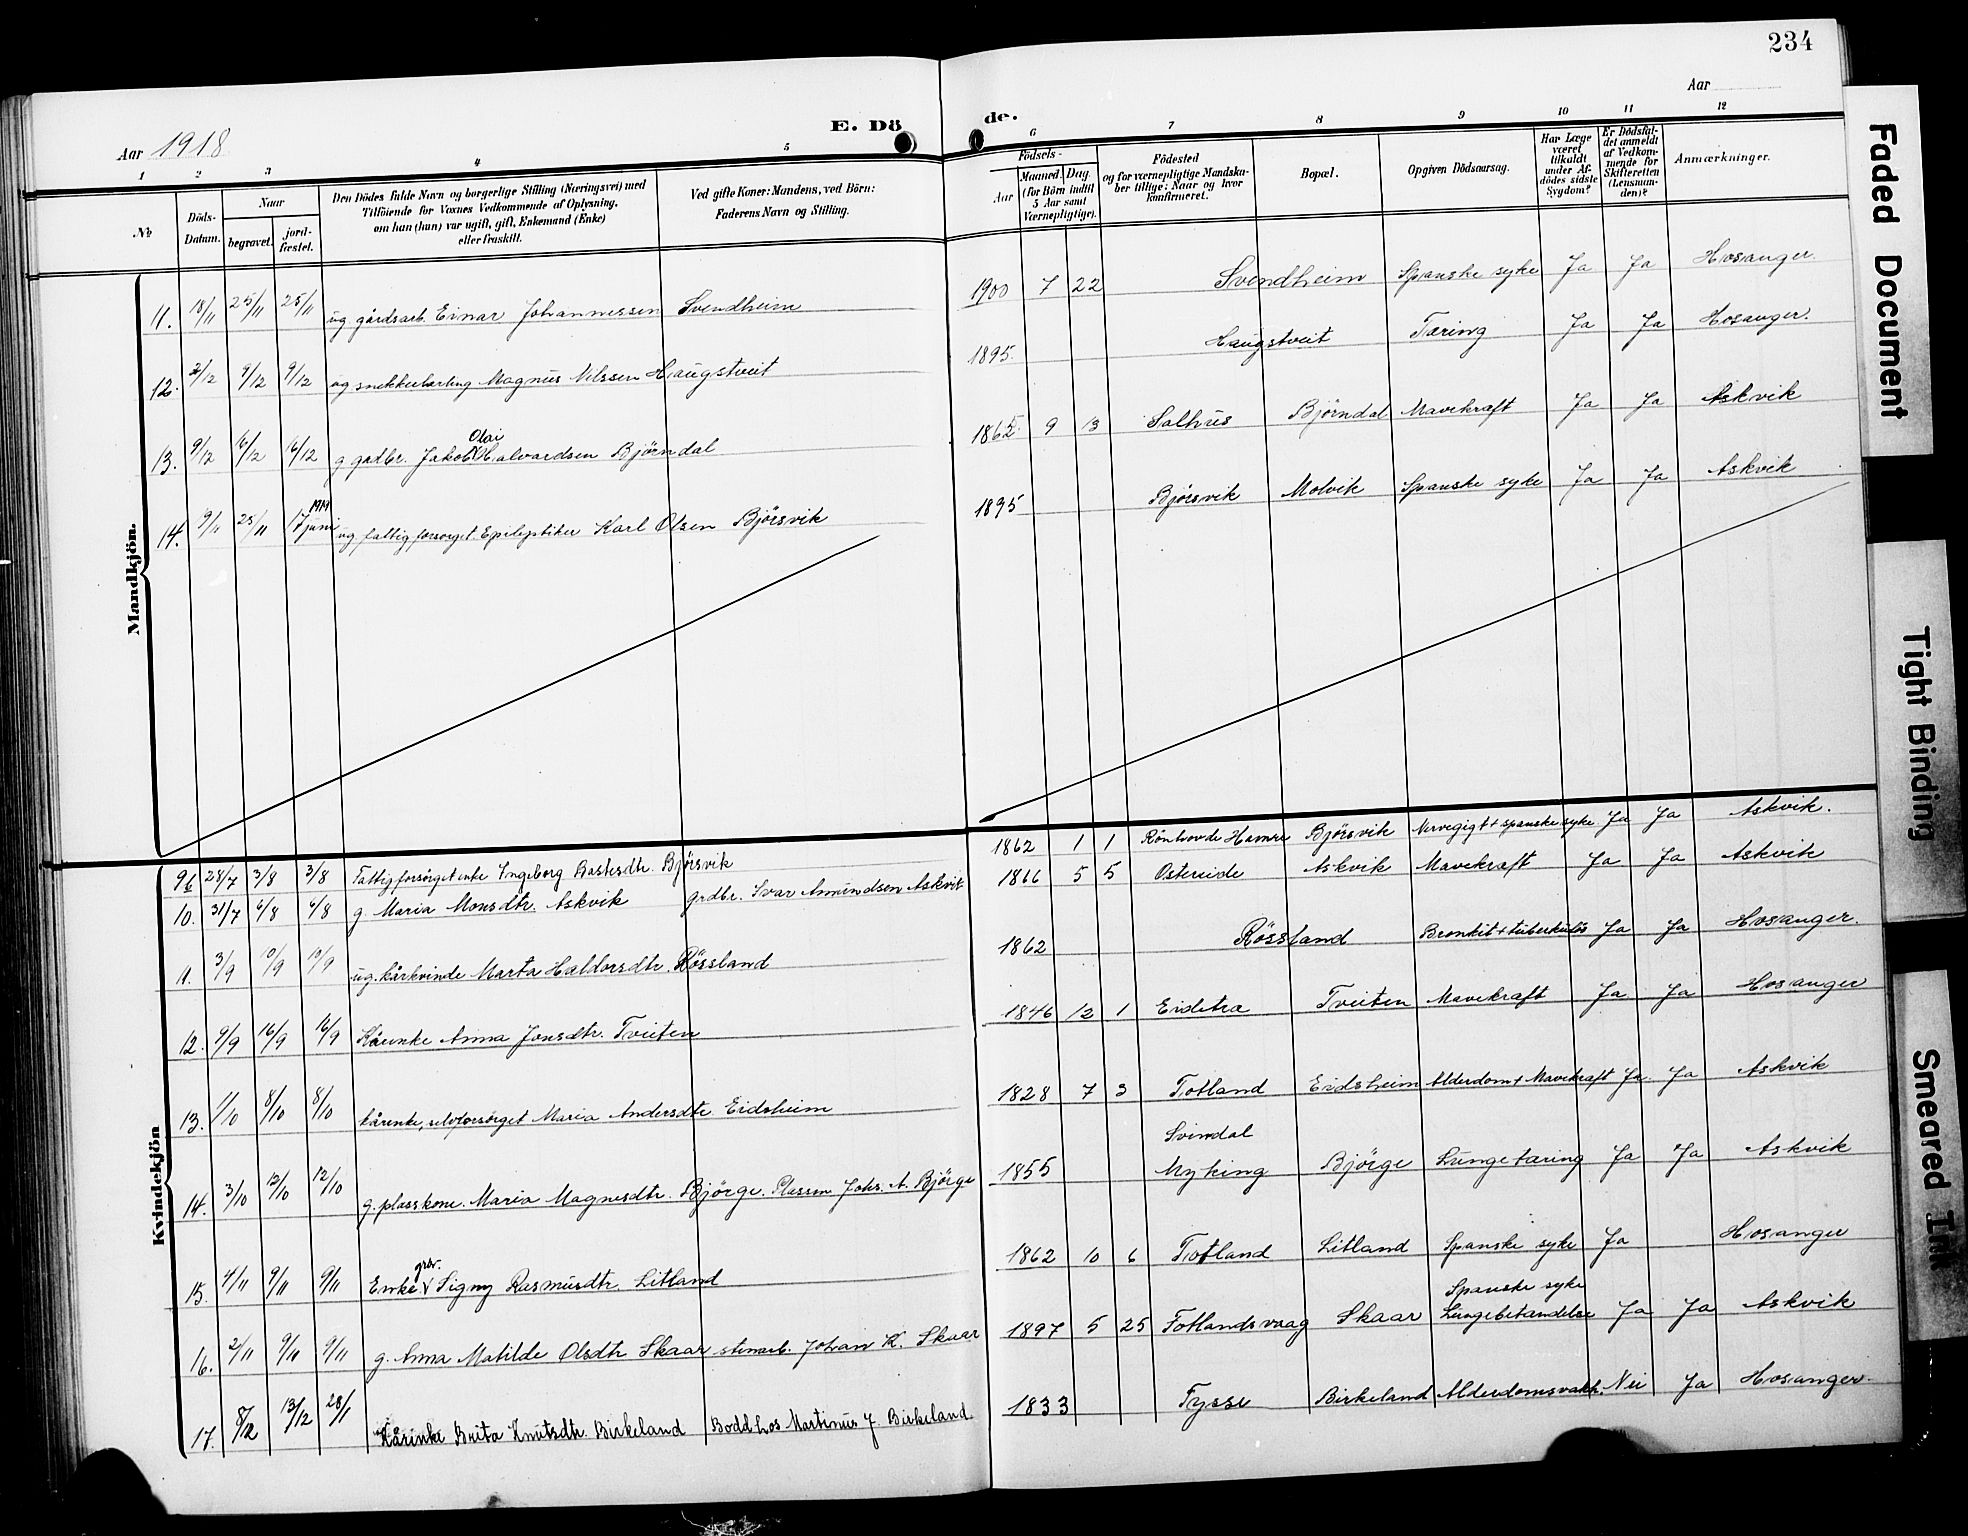 234
Aar 1918
E. Dö
de.
Aar
1 2 3 4 5
6 7 8 9 10 11 12
No
Döds-Datum.
Naar
begravet.
jord-fæstet.
Den Dödes fulde Navn og borgerlige Stilling (Næringsvei) med
Tilföiende for Voxnes Vedkommende af Oplysning,
om han (hun) var ugift, gift, Enkemand (Enke)
eller fraskilt.
Ved gifte Koner: Mandens, ved Börn:
Faderens Navn og Stilling.
Födsels-
Aar
Maaned. Dag.
(for Börn indtil
5 Aar samt
Værnepligtige).
Födested
og for værnepligtige Mandska-
ber tillige: Naar og hvor
konfirmeret.
Bopæl.
Opgiven Dödsaarsag.
Har Læge
været
tilkaldt
under Af-
dödes sidste
Sygdom?
Er Dödsfal-
det anmeldt
af Vedkom-
mende for
Skifteretten
(Lensman-
den)?
Anmærkninger.
Mandkjön.
11. 18/11 25/11 25/11 ug gårdsarb. Einar Johannessen Svendheim 1900 7 22 Svendheim Spanske syke Ja Ja Hosanger.
12. 2/12 9/12 9/12 ug snekkerlærling Magnus Nilssen Haugstveit 1895. Haugstveit Tæring Ja Ja Hosanger.
Olai
13. 9/12 16/12 16/12 g gadbr. Jakob Halvardsen Björndal 1865. 9 13 Salhus Björndal Mavekraft Ja Ja Askvik
1919
14. 9/11 25/11 17 juni ug fattigforsörget Epileptiker Karl Olsen Björsvik 1895 Björsvik Molvik Spanske syke Ja Ja Askvik
Kvindekjön
96 28/7 3/8 3/8 Fattigforsörget enke Ingeborg Bastesdtr. Björsvik 1862 1 1 Rönhovde Hamre Björsvik Nervegigt + spanske syke Ja Ja Askvik.
10. 31/7 6/8 6/8 g. Maria Monsdtr. Askvik grdbr. Ivar Amundsen Askvik 1866 5 5 Ostereide Askvik Mavekraft Ja Ja Askvik
11. 3/9 10/9 10/9 ug. kårkvinde Marta Haldorsdtr. Rössland 1862 Rössland Bronkit + tuberkulös Ja Ja Hosanger.
12. 9/9 16/9 16/9 Kårenke Anna Jonsdtr. Tveiten 1846 12 1 Eidetra Tveiten Mavekraft Ja Ja Hosanger
13. 1/10 8/10 8/10 kårenke, selvforsörget Maria Andersdtr Eidsheim 1828 7 3 Totland Eidsheim Alderdom + Mavekraft Ja Ja Askvik
Svindal
14. 3/10 12/10 12/10 g. plasskone. Maria Magnesdtr. Björge. Plassm Johs. A. Björge 1855 Myking Björge Lungetæring Ja Ja Askvik
grbr.
15. 4/11 9/11 9/11 Enke Signy Rasmusdtr. Litland 1862 10 6 Totland Litland Spanske syke Ja Hosanger
Spanske syke
16. 2/11 9/11 9/11 g. Anna Matilde Olsdtr Skaar stenarb. Johan K. Skaar 1897 5 25 Fotlandsvaag Skaar Lungebetændelse Ja Ja Askvik
17. 8/12 13/12 28/1 Kårenke Brita Knutsdtr. Birkeland Bodd hos Martinus J. Birkeland 1833 Tysse Birkeland Alderdomsvakh. Nei Ja Hosanger.
Faded Document
Tight Binding
Smeared Ink